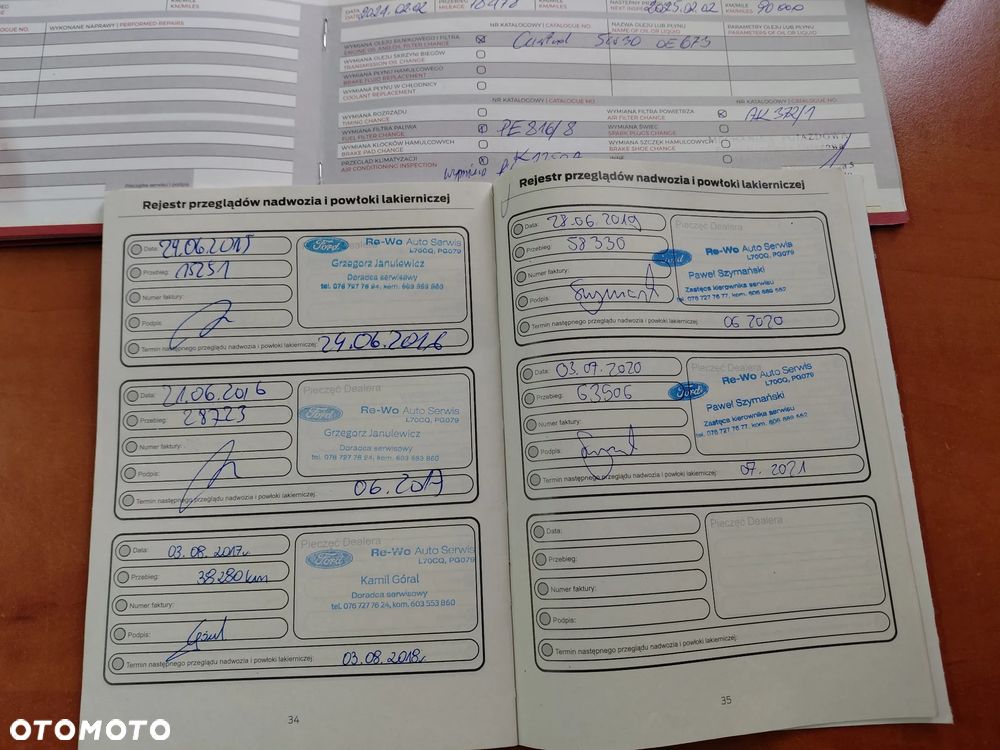 WYKONANE NAPRAWY | PERFORMED REPAIRS
2024.02.02
MILEAGE
2025.02.02
KM/MILE
KM/MILES
90 000
NR KATALOGOWY | CATALOGUE NO.
NAZWA OLEJU LUB PŁYNU
NAME OF OIL OR LIQUID
PARAMETRY OLEJU LUB PŁYNU
PARAMETERS OF OIL OR LIQUID
WYMIANA OLEJU SILNIKOWEGO I FILTRA
ENGINE OIL AND OIL FILTER CHANGE
5W30 OE673
WYMIANA OLEJU SKRZYNI BIEGÓW
TRANSMISSION OIL CHANGE
WYMIANA PŁYNU HAMULCOWEGO
BRAKE FLUID REPLACEMENT
WYMIANA PŁYNU W CHŁODNICY
COOLANT REPLACEMENT
NR KATALOGOWY | CATALOGUE NO.
NR KATALOGOWY | CATALOGUE NO.
WYMIANA ROZRZĄDU
TIMING CHANGE
WYMIANA FILTRA POWIETRZA
AIR FILTER CHANGE
AK 372/1
WYMIANA FILTRA PALIWA
FUEL FILTER CHANGE
PE 816/8
WYMIANA ŚWIEC
SPARK PLUGS CHANGE
WYMIANA KLOCKÓW HAMULCOWYCH
BRAKE PAD CHANGE
WYMIANA SZCZĘK HAMULCOWYCH
BRAKE SHOE CHANGE
PRZEGLĄD KLIMATYZACJI
AIR CONDITIONING INSPECTION
INNE
Pieczątka serwisu i podpis
Rejestr przeglądów nadwozia i powłoki lakierniczej
Data: 24.06.2015
Przebieg: 15251
Numer faktury:
Podpis:
Ford
Re-Wo Auto Serwis
L70CQ, PG079
Grzegorz Janulewicz
Doradca serwisowy
tel. 076 727 76 24, kom. 603 553 860
Termin następnego przeglądu nadwozia i powłoki lakierniczej: 24.06.2016
Data: 21.06.2016
Przebieg: 28723
Numer faktury:
Podpis:
Pieczęć Dealera
Ford
Re-Wo Auto Serwis
L70CQ, PG079
Grzegorz Janulewicz
Doradca serwisowy
tel. 076 727 76 24, kom. 603 553 860
Termin następnego przeglądu nadwozia i powłoki lakierniczej: 06.2017
Data: 03.08.2017r
Przebieg: 38280km
Numer faktury:
Podpis: Góral
Pieczęć Dealera
Ford
Re-Wo Auto Serwis
L70CQ, PG079
Kamil Góral
Doradca serwisowy
tel. 076 727 76 24, kom. 603 553 860
Termin następnego przeglądu nadwozia i powłoki lakierniczej: 03.08.2018r
34
Rejestr przeglądów nadwozia i powłoki lakierniczej
Data: 28.06.2019
Przebieg: 58330
Numer faktury:
Podpis:
Pieczęć Dealera
Ford
Re-Wo Auto Serwis
L70CQ, PG079
Paweł Szymański
Zastępca kierownika serwisu
tel. 076 727 76 77, kom. 606 889 552
Termin następnego przeglądu nadwozia i powłoki lakierniczej: 06 2020
Data: 03.07.2020
Przebieg: 63506
Numer faktury:
Podpis:
Pieczęć Dealera
Ford
Re-Wo Auto Serwis
L70CQ, PG079
Paweł Szymański
Zastępca kierownika serwisu
tel. 076 727 76 77, kom. 606 889 552
Termin następnego przeglądu nadwozia i powłoki lakierniczej: 07.2021
Data:
Przebieg:
Numer faktury:
Podpis:
Pieczęć Dealera
Termin następnego przeglądu nadwozia i powłoki lakierniczej:
35
OTOMOTO